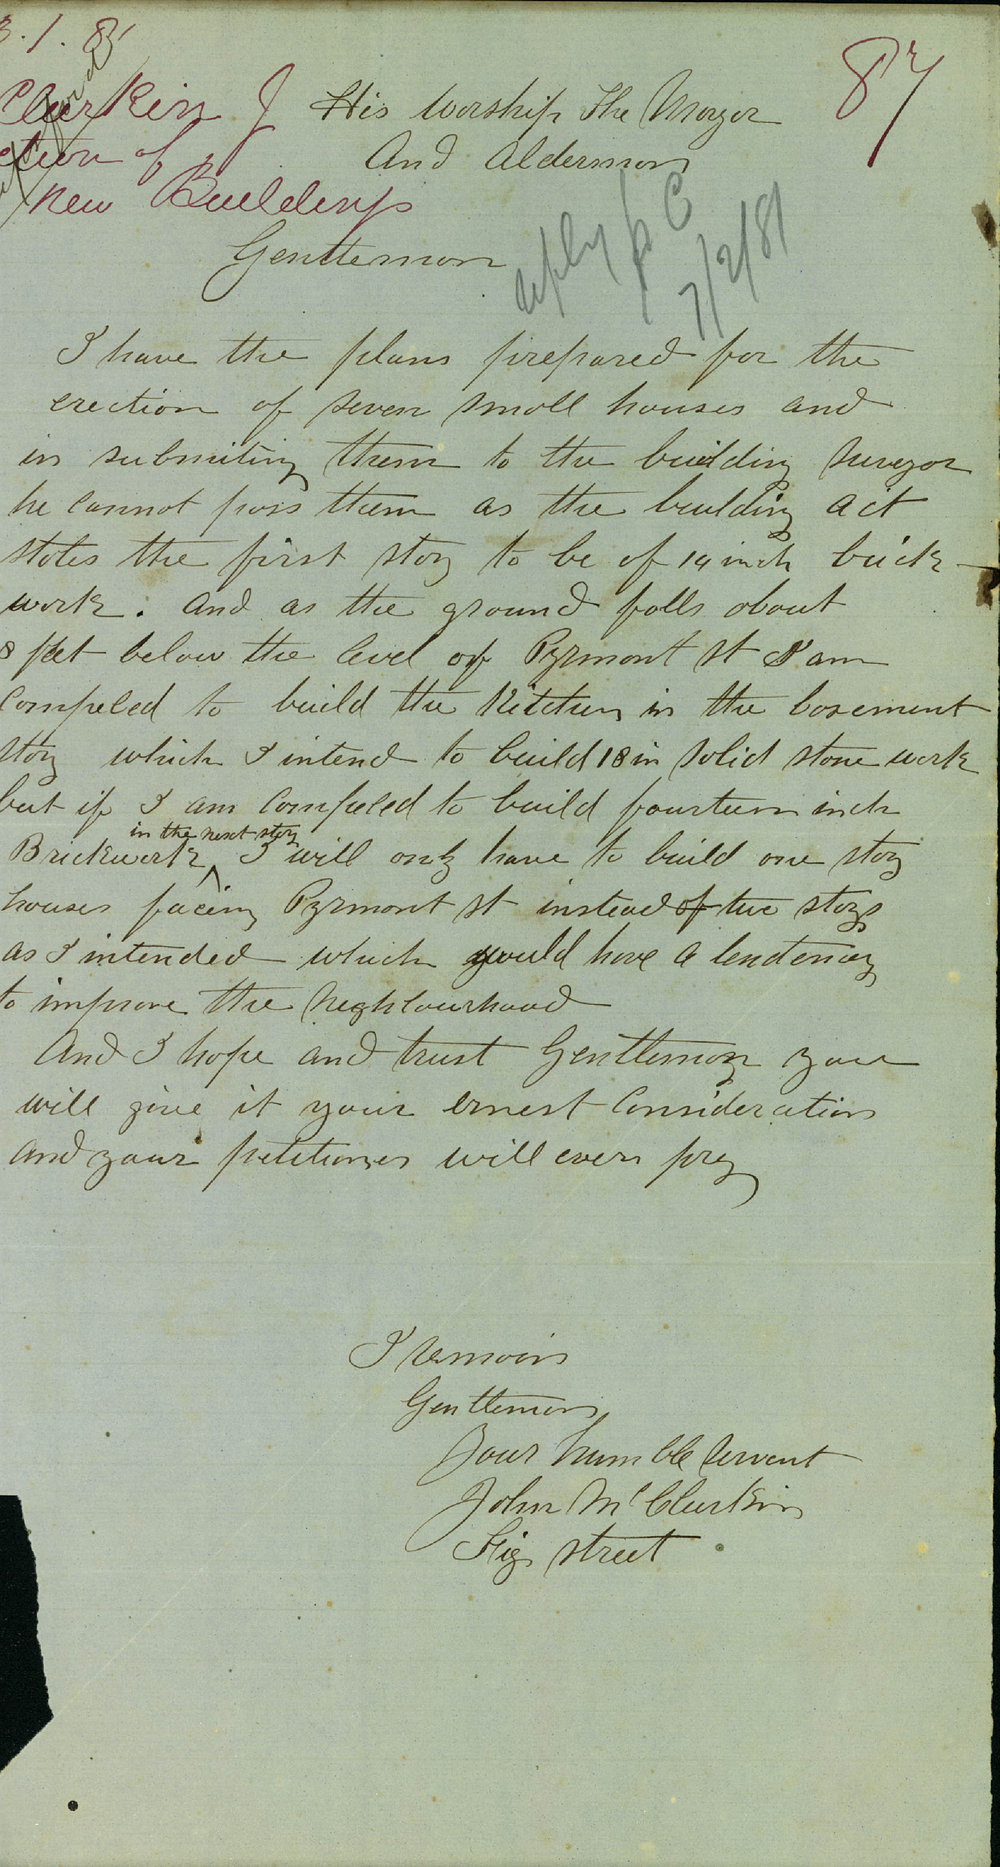 3.1.81
87
Clurkin J
ction of
New Buildings
His Worship The Mayor
And Aldermen
reply p C
7/2/81
Gentlemen
I have the plans prepared for the
erection of seven small houses and
in submiting them to the building surveyor
he cannot pass them as the building act
states the first story to be of 14 inch brick
work. And as the ground falls about
8 feet below the level of Pyrmont st I am
Compeled to build the Kitchen in the basement
story which I intend to build 18 in solid stone work
but if I am Compeled to build fourteen inch
Brickwork in the next story I will only have to build one story
houses facing Pyrmont st instead of two storys
as I intended which would have a tendency
to improve the neghbourhood
And I hope and trust Gentlemen you
will give it your ernest Consideration
And your petitioner will ever pray
I remain
Gentlemen
Your humble servent
John McClurkin
Fig street